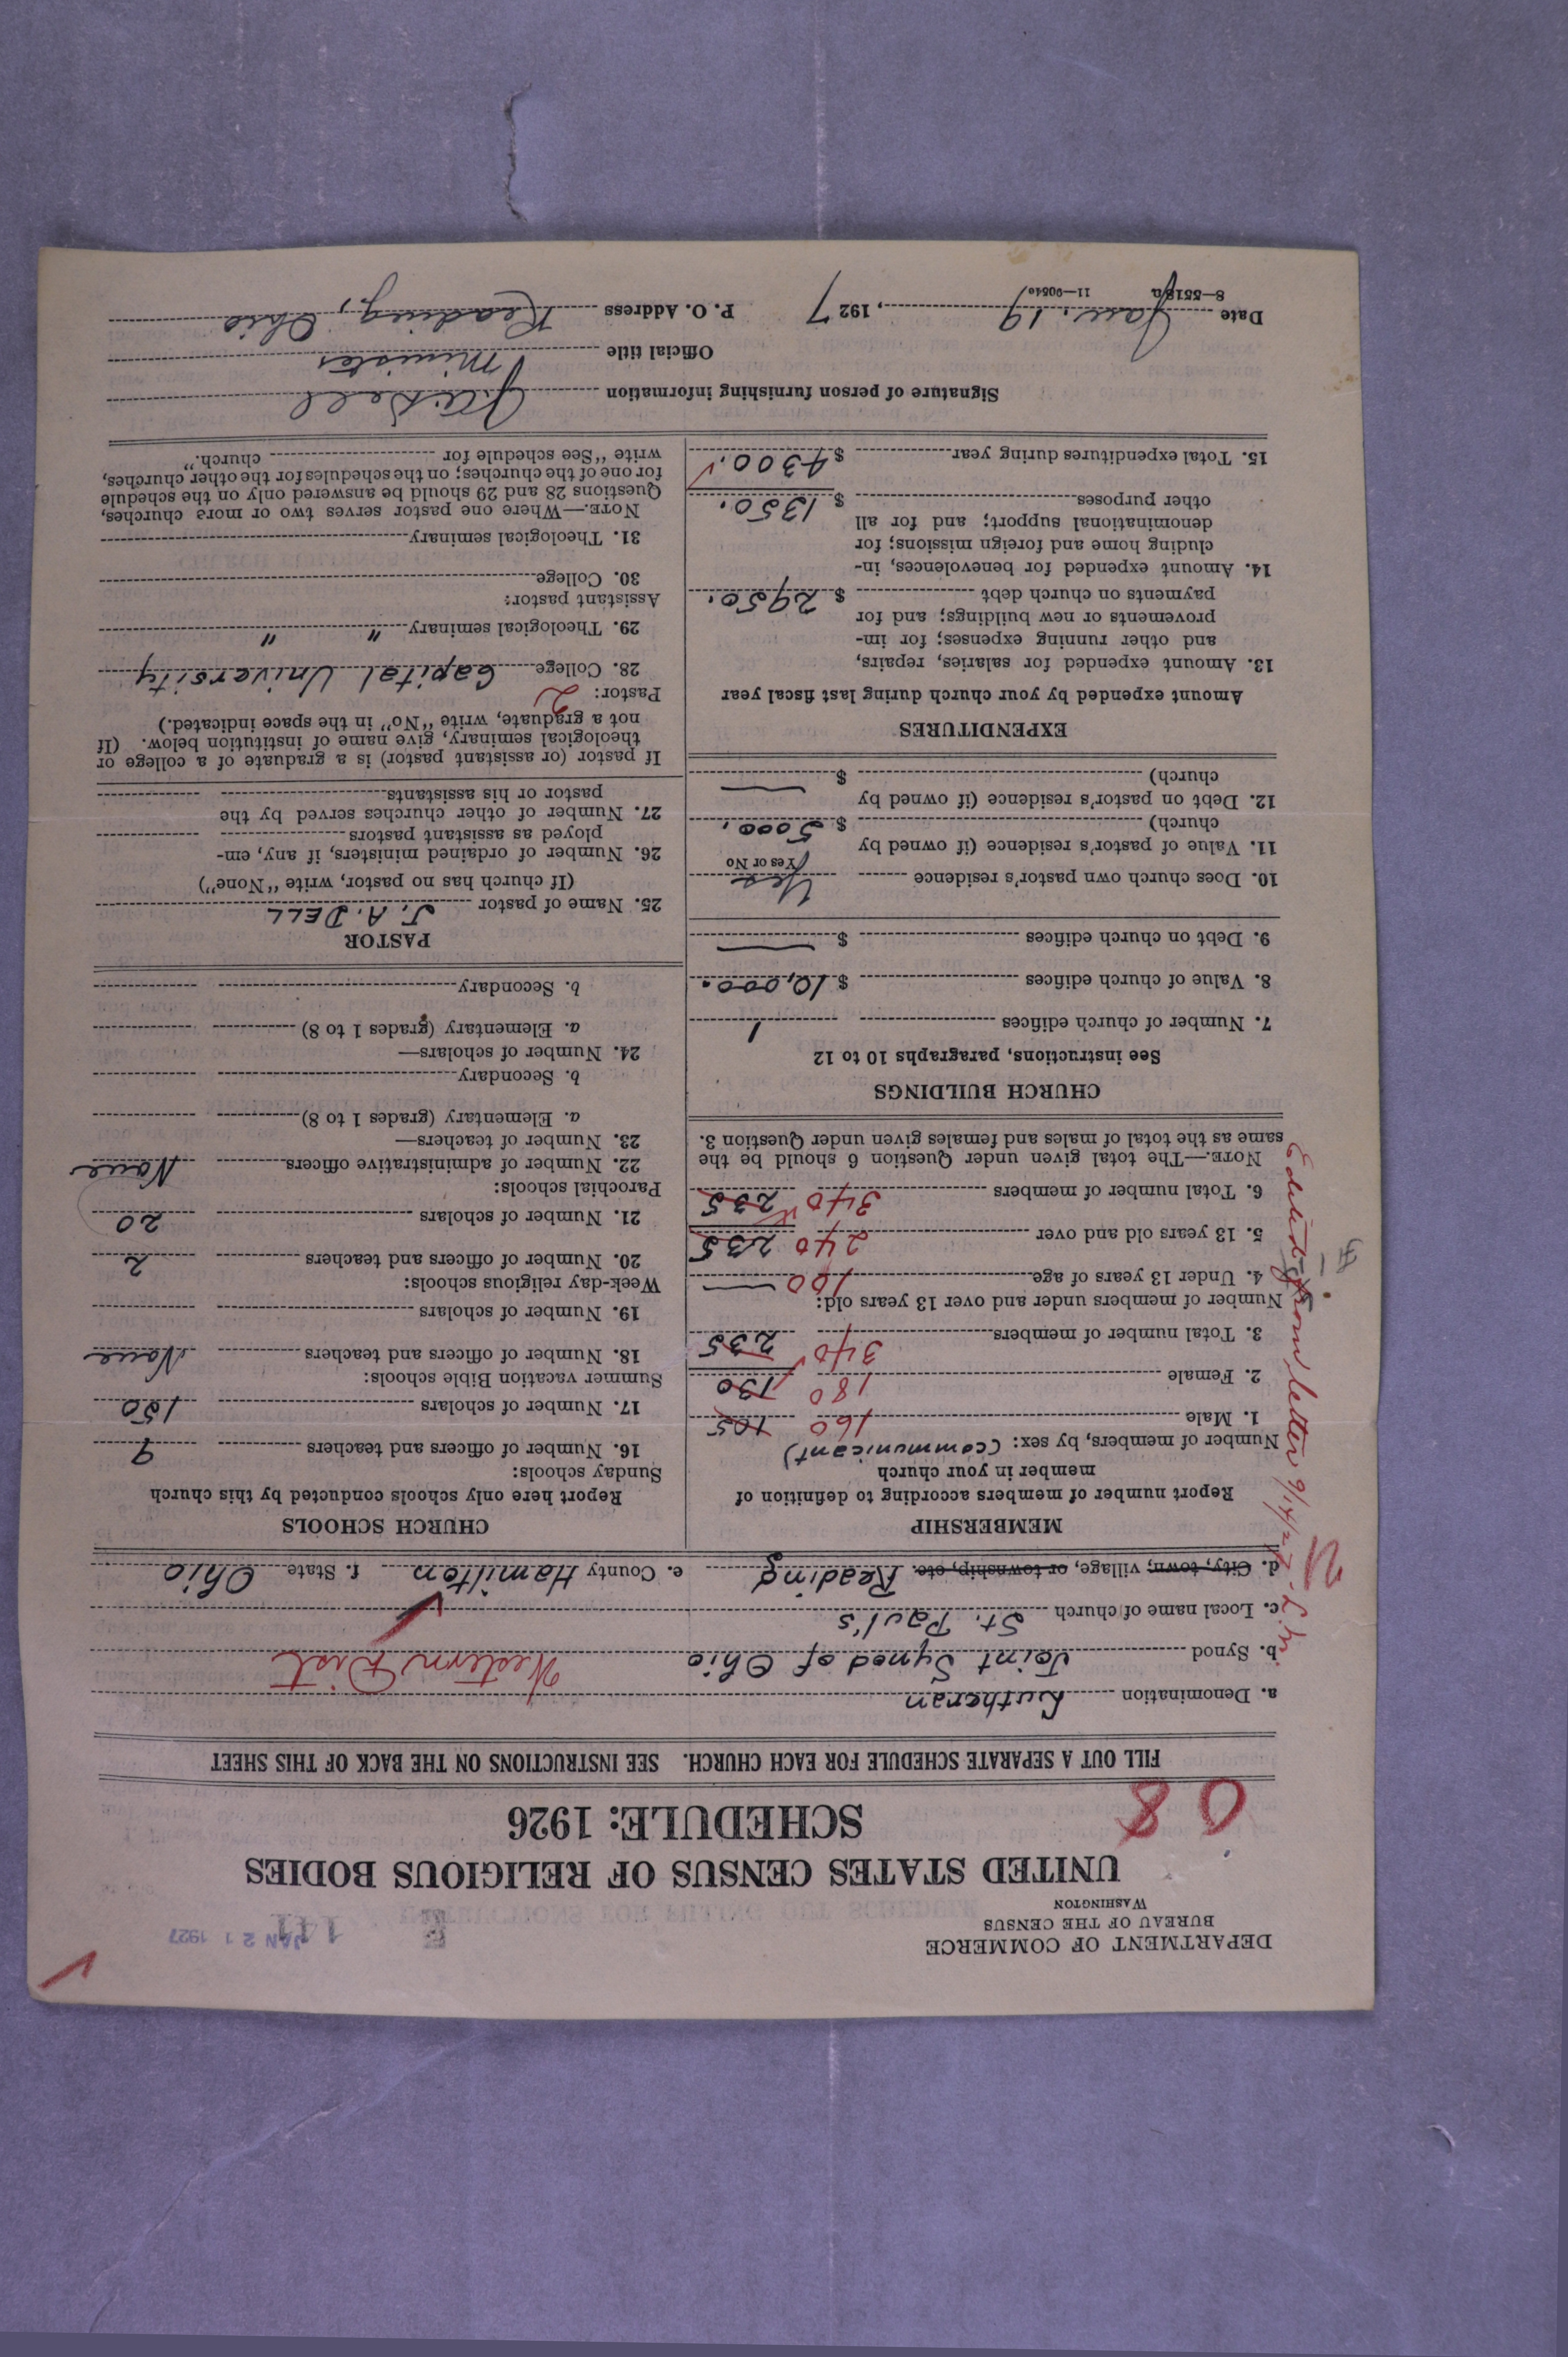 DEPARTMENT OF COMMERCE
BUREAU OF THE CENSUS
WASHINGTON
JAN 21 1927
UNITED STATES CENSUS OF RELIGIOUS BODIES
SCHEDULE: 1926
08
FILL OUT A SEPARATE SCHEDULE FOR EACH CHURCH. SEE INSTRUCTIONS ON THE BACK OF THIS SHEET
a. Denomination Lutheran
b. Synod Joint Synod of Ohio Western Dist
c. Local name of church St. Paul's
d. City, town, village, or township, etc. Reading e. County Hamilton f. State Ohio
MEMBERSHIP
Report number of members according to definition of
member in your church
Number of members, by sex: (communicant)
1. Male 160 105
2. Female 180 130
3. Total number of members 340 235
Number of members under and over 13 years old:
4. Under 13 years of age 100 —
5. 13 years old and over 240 235
6. Total number of members 340 235
NOTE.—The total given under Question 6 should be the
same as the total of males and females given under Question 3.
CHURCH BUILDINGS
See instructions, paragraphs 10 to 12
7. Number of church edifices 1
8. Value of church edifices $ 10,000.
9. Debt on church edifices $ —
10. Does church own pastor's residence Yes
Yes or No
11. Value of pastor's residence (if owned by
church) $ 5000.
12. Debt on pastor's residence (if owned by
church) $ —
EXPENDITURES
Amount expended by your church during last fiscal year
13. Amount expended for salaries, repairs,
and other running expenses; for im-
provements or new buildings; and for
payments on church debt $ 2950.
14. Amount expended for benevolences, in-
cluding home and foreign missions; for
denominational support; and for all
other purposes $ 1350.
15. Total expenditures during year $ 4300.
CHURCH SCHOOLS
Report here only schools conducted by this church
Sunday schools:
16. Number of officers and teachers 9
17. Number of scholars 150
Summer vacation Bible schools:
18. Number of officers and teachers None
19. Number of scholars
Week-day religious schools:
20. Number of officers and teachers 2
21. Number of scholars 20
Parochial schools:
22. Number of administrative officers None
23. Number of teachers—
a. Elementary (grades 1 to 8)
b. Secondary
24. Number of scholars—
a. Elementary (grades 1 to 8)
b. Secondary
PASTOR
25. Name of pastor J. A. DELL
(If church has no pastor, write "None")
26. Number of ordained ministers, if any, em-
ployed as assistant pastors
27. Number of other churches served by the
pastor or his assistants
If pastor (or assistant pastor) is a graduate of a college or
theological seminary, give name of institution below. (If
not a graduate, write "No" in the space indicated.)
Pastor: 2
28. College Capital University
29. Theological seminary " "
Assistant pastor:
30. College
31. Theological seminary
NOTE.—Where one pastor serves two or more churches,
Questions 28 and 29 should be answered only on the schedule
for one of the churches; on the schedules for the other churches,
write "See schedule for church."
Signature of person furnishing information J. A. Dell
Official title Minister
Date Jan. 19, 1927 P. O. Address Reading, Ohio
8—5518a 11—9054
Edited from letter 9/14/27